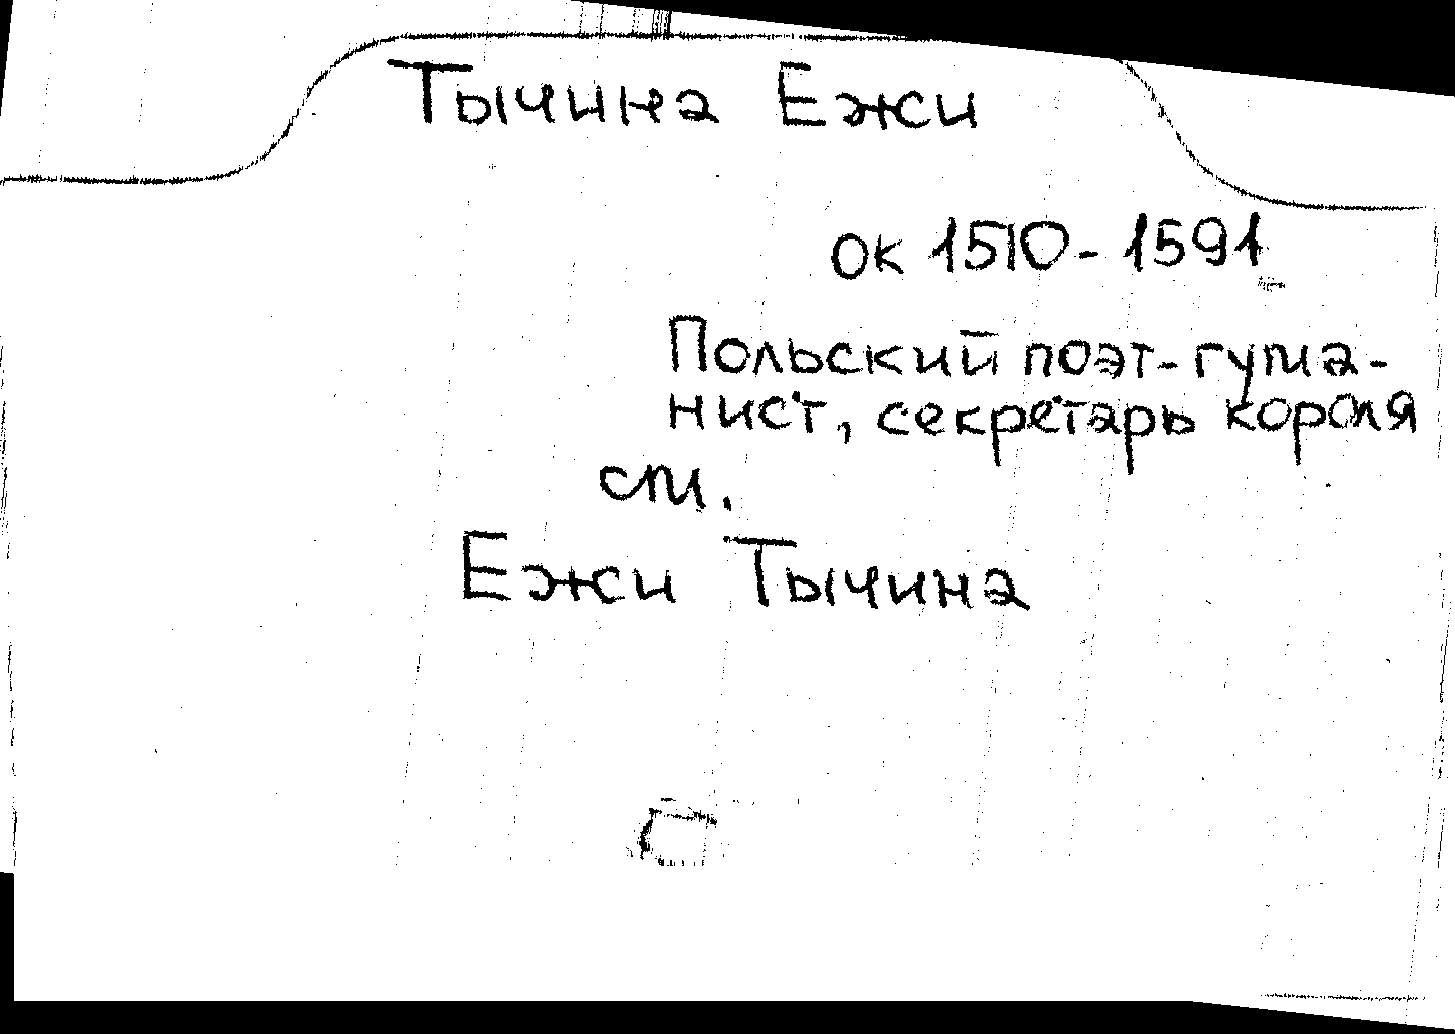 Тычина Ежи
ок 1510-1591
Польский поэт-гума-
нист, секретарь короля
см.
Ежи Тычина